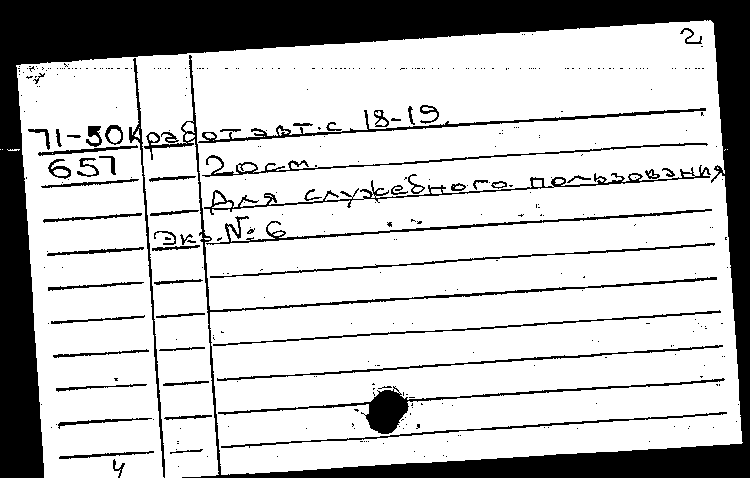 2
71-50К работ авт. с. 18-19.
657 20см.
Для служебного пользования
Экз. № 6
4